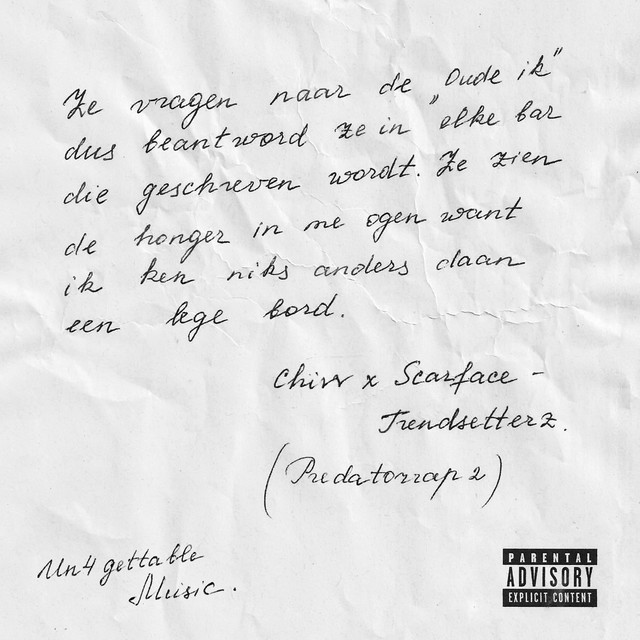 Ze vragen naar de "Oude ik"
dus beantword ze in "elke bar
die geschreven wordt. Ze zien
de honger in me ogen want
ik ken niks anders daan
een lege bord.
Chivv x Scarface -
Trendsetterz.
(Predatorrap 2)
Un4gettable
Music.
PARENTAL
ADVISORY
EXPLICIT CONTENT